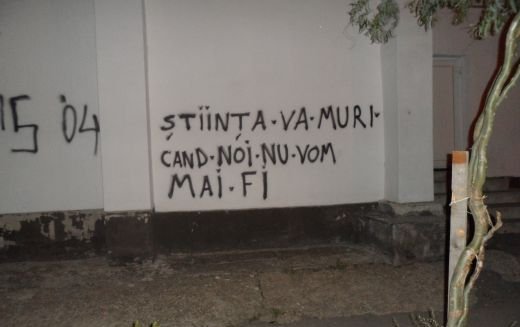 '04
ȘTIINȚA·VA·MURI·
CAND·NOI·NU·VOM
MAI·FI